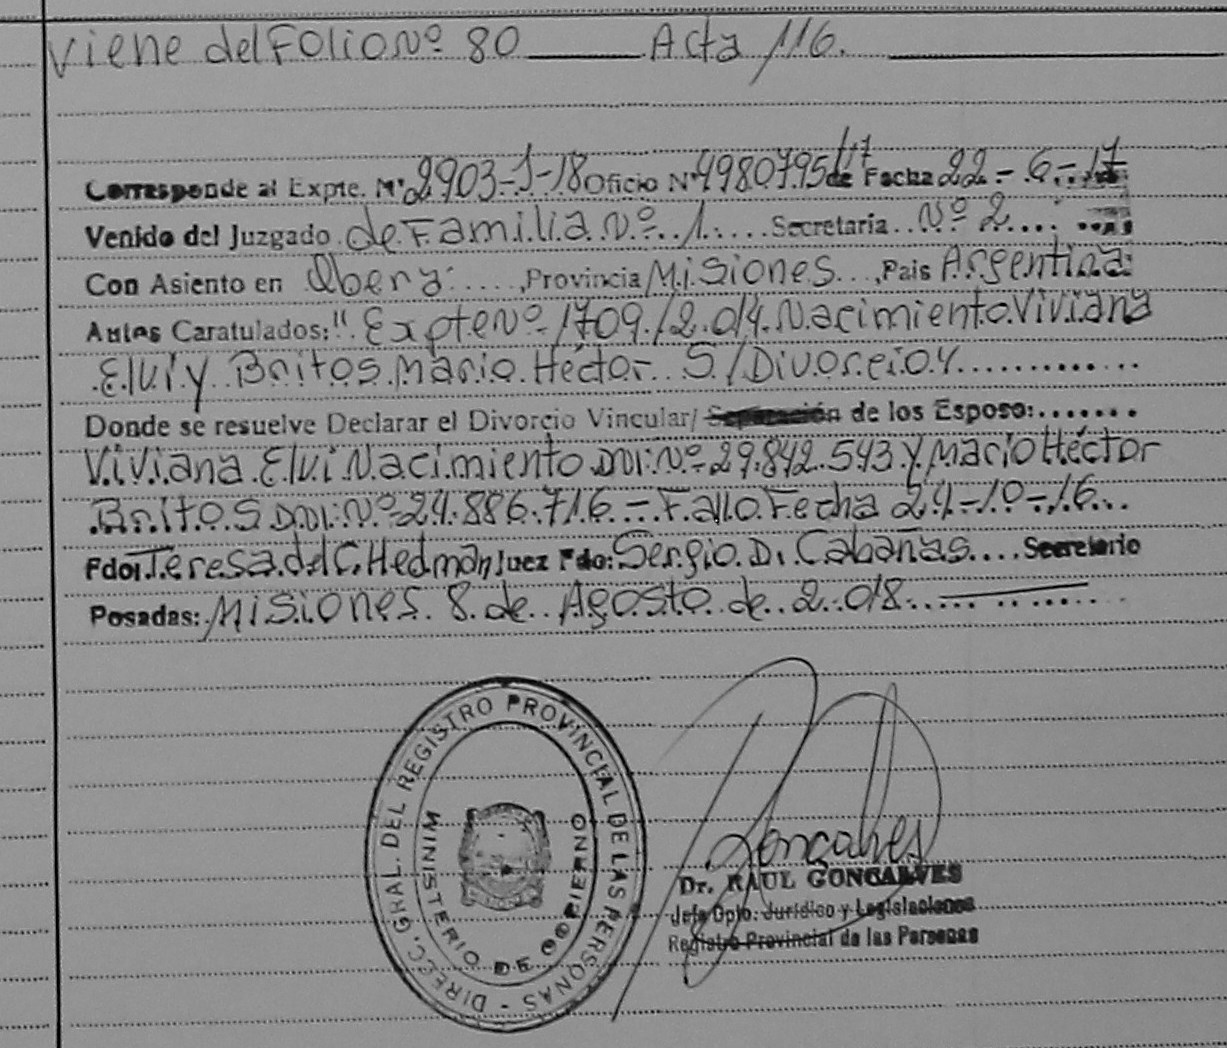 Viene del Folio Nº 80 ___ Acta 116. ___
Corresponde al Expte. Nº 2903-J-18 Oficio Nº 4980795/17 de Fecha 22-6-17
Venido del Juzgado de Familia Nº 1 ..... Secretaria .. Nº 2 ....
Con Asiento en Obera ....., Provincia Misiones ..., Pais Argentina
Autos Caratulados: "Expte Nº 1709/2.014. Nacimiento Viviana
Elvi y Britos Mario Héctor S/Divorcio" ............
Donde se resuelve Declarar el Divorcio Vincular/ Separación de los Esposo: .......
Viviana Elvi Nacimiento DNI: Nº 29.842.543 y Mario Héctor
Britos DNI: Nº 24.886.716 - Fallo Fecha 24-10-16...
Fdo: Teresa del C. Hedman Juez Fdo: Sergio D. Cabañas .... Secretario
Posadas: Misiones 8 de Agosto de 2.018 ...
DIREC. GRAL. DEL REGISTRO PROVINCIAL DE LAS PERSONAS -
MINISTERIO DE GOBIERNO
Goncalves
Dr. RAUL GONCALVES
Jefe Dpto. Jurídico y Legislaciones
Registro Provincial de las Personas